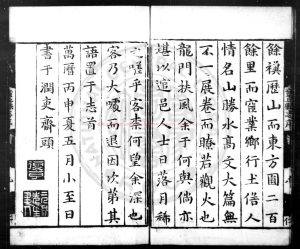 餘禩歷山而東方圓二百
餘里而窟業鄉行土僐人
情名山勝水髙文大篇無
不一展卷而瞭若觀火也
龍門扶風余于何與倘亦
堪以諠邑人士日落月稀
之嗟乎客柰何望余深也
客乃大噱而退因次第其
語置于志首
萬曆丙申夏五月小至日
書于澗爽齋頭